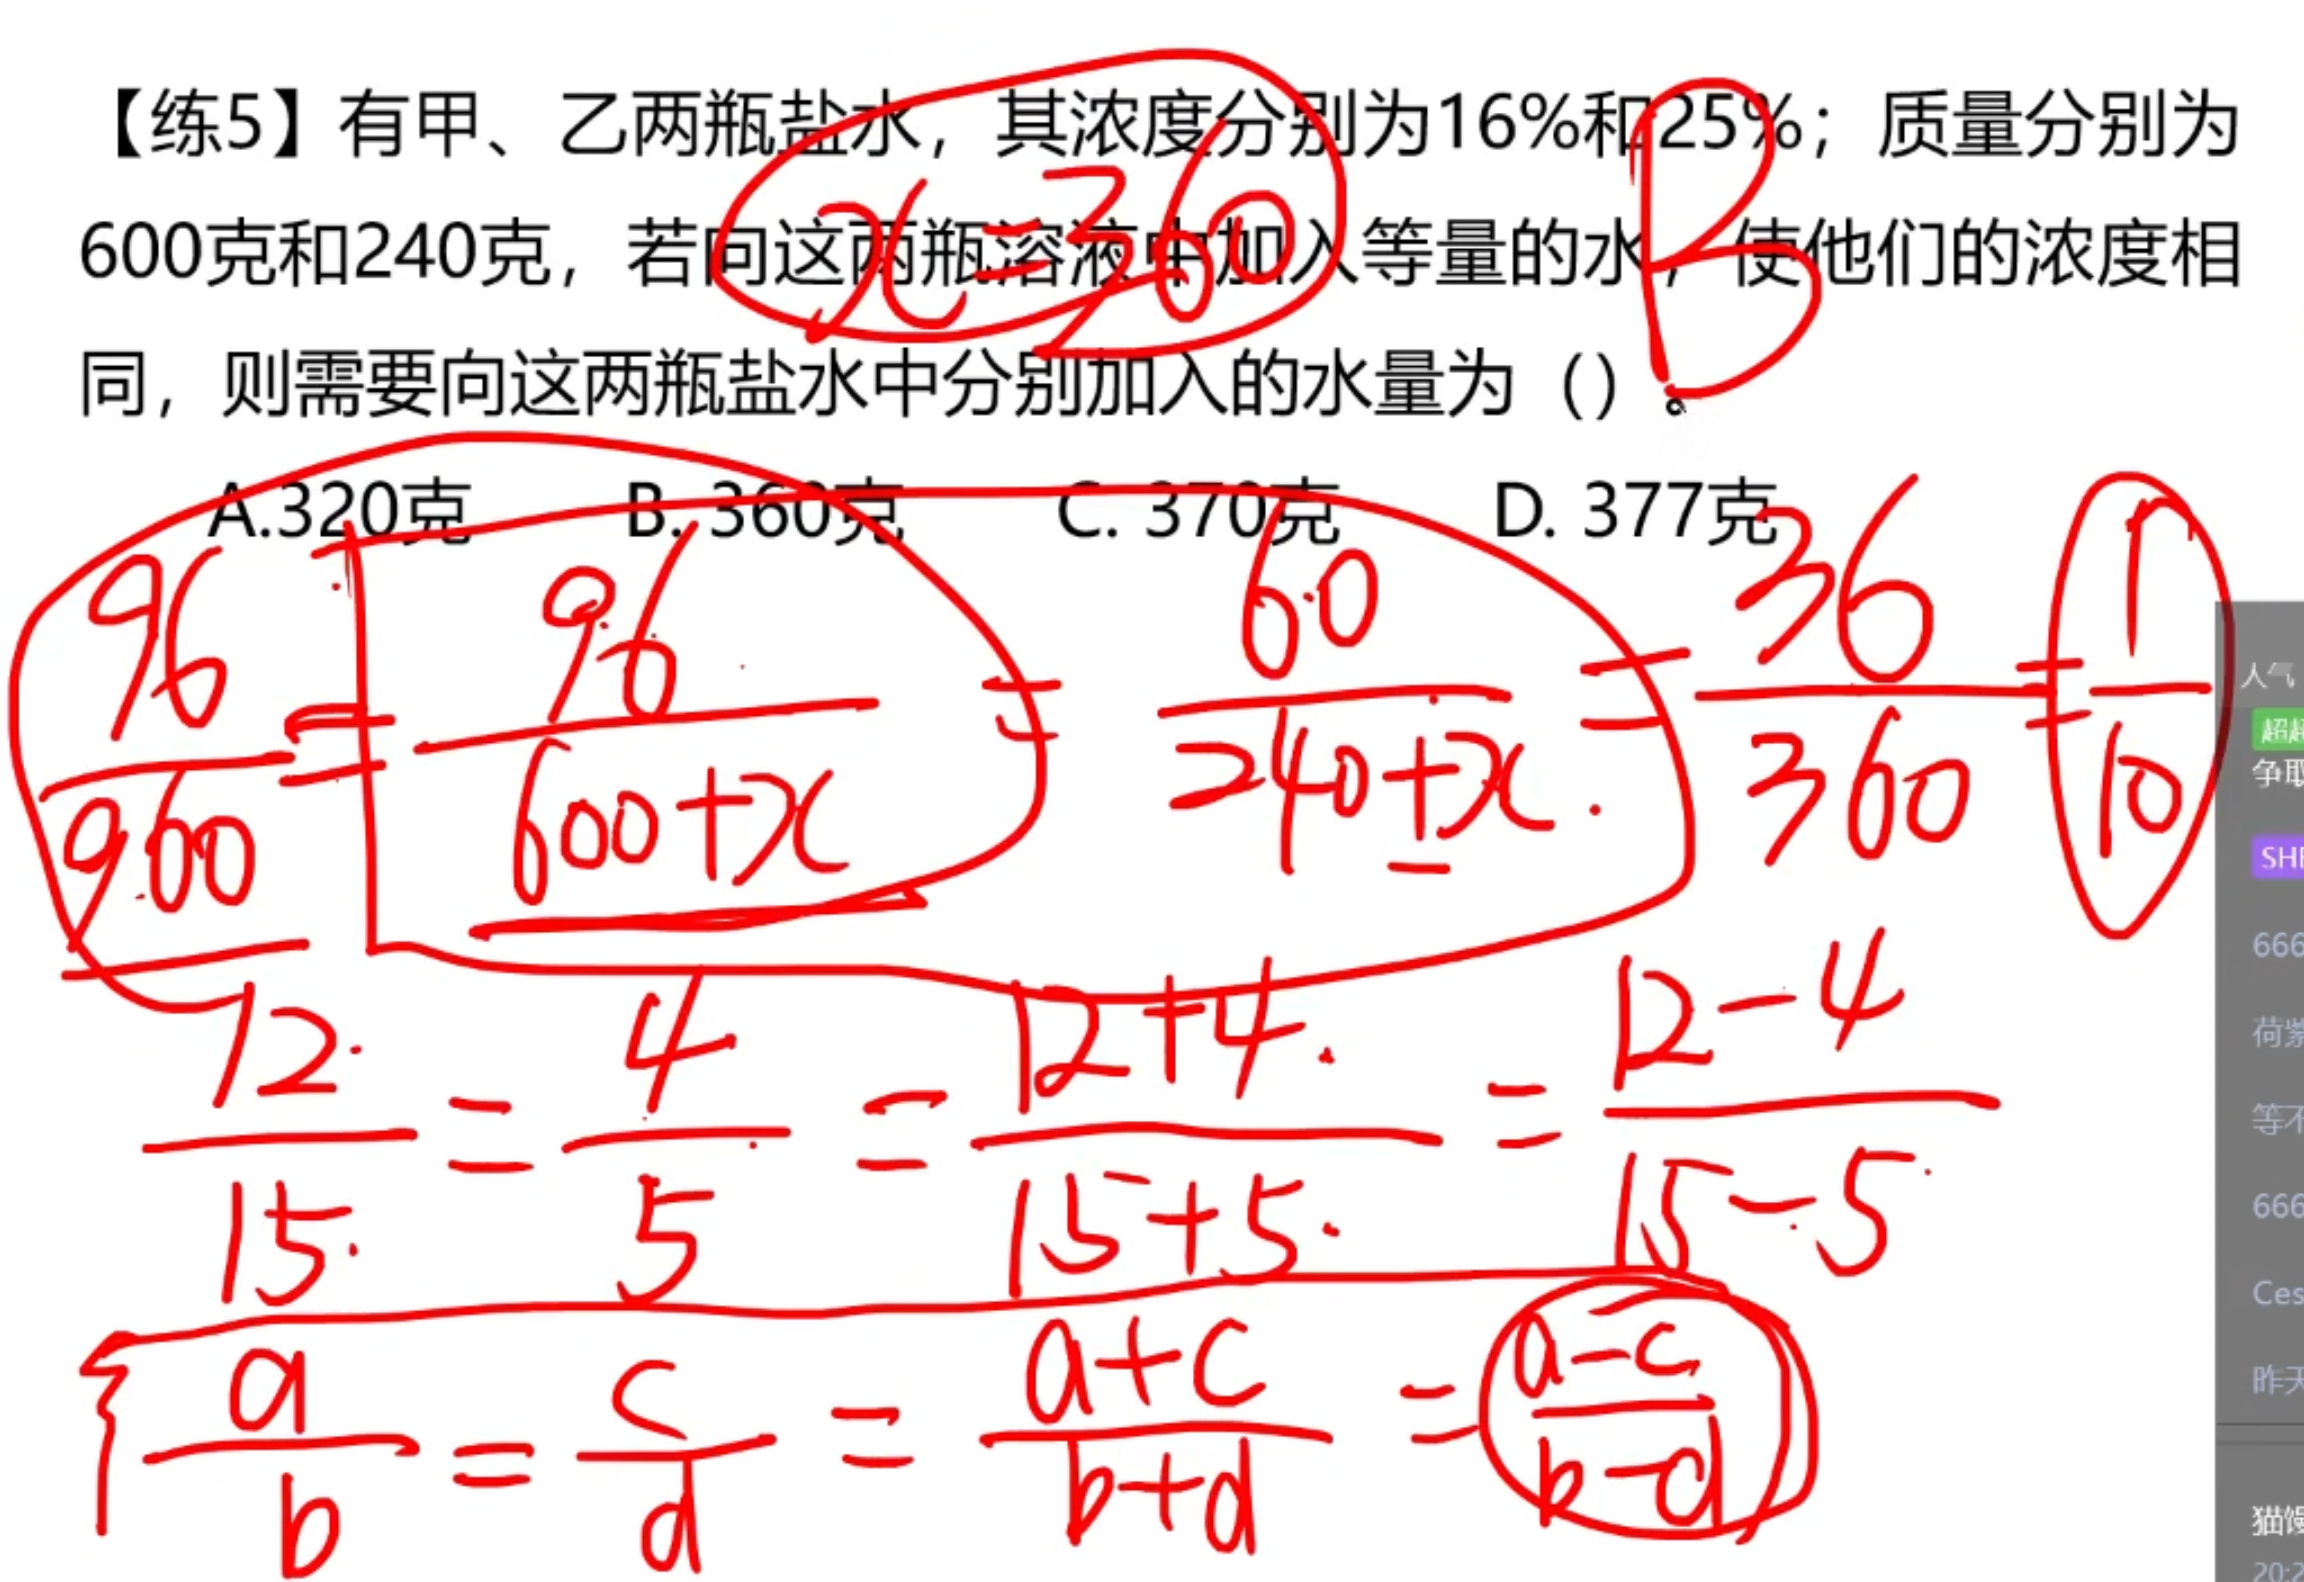 【练5】有甲、乙两瓶盐水，其浓度分别为16%和25%；质量分别为
600克和240克，若向这两瓶溶液中加入等量的水，使他们的浓度相
同，则需要向这两瓶盐水中分别加入的水量为（）。
x=360
B
A.320克 B. 360克 C. 370克 D. 377克
96/960 = 96/(600+x) = 60/(240+x) = 36/360 = 1/10
12/15 = 4/5 = (12+4)/(15+5) = (12-4)/(15-5)
a/b = c/d = (a+c)/(b+d) = (a-c)/(b-d)
人气
超
争取
SH
666
荷
等不
666
Ces
昨天
猫馒
20:2